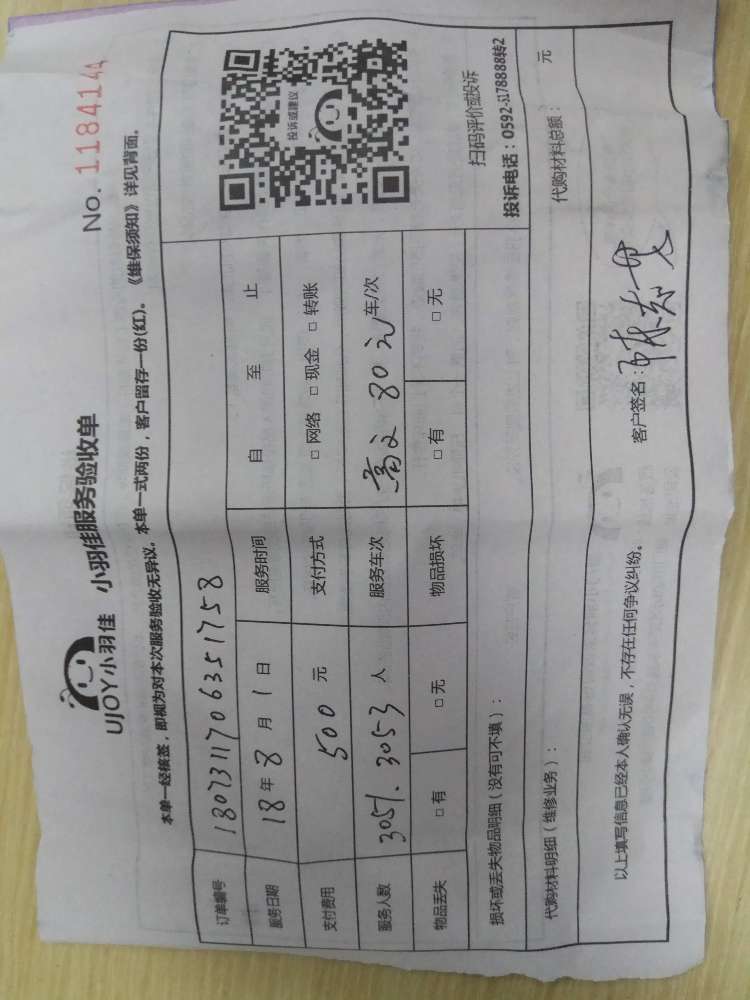 UJOY小羽佳 小羽佳服务验收单
No. 1184144
本单一经核签，即视为对本次服务验收无异议。本单一式两份，客户留存一份(红)。《维保须知》详见背面。
订单编号 1807311706351758
服务日期 18年8月1日 服务时间 自 至 止
支付费用 500元 支付方式 □网络 □现金 □转账
服务人数 3051.3053人 服务车次 80元 车/次
物品丢失 □有 □无 物品损坏 □有 □无
投诉或建议
扫码评价或投诉
投诉电话：0592-3178888转2
损坏或丢失物品明细（没有可不填）：
代购材料明细（维修业务）： 代购材料总额： 元
以上填写信息已经本人确认无误，不存在任何争议纠纷。 客户签名：